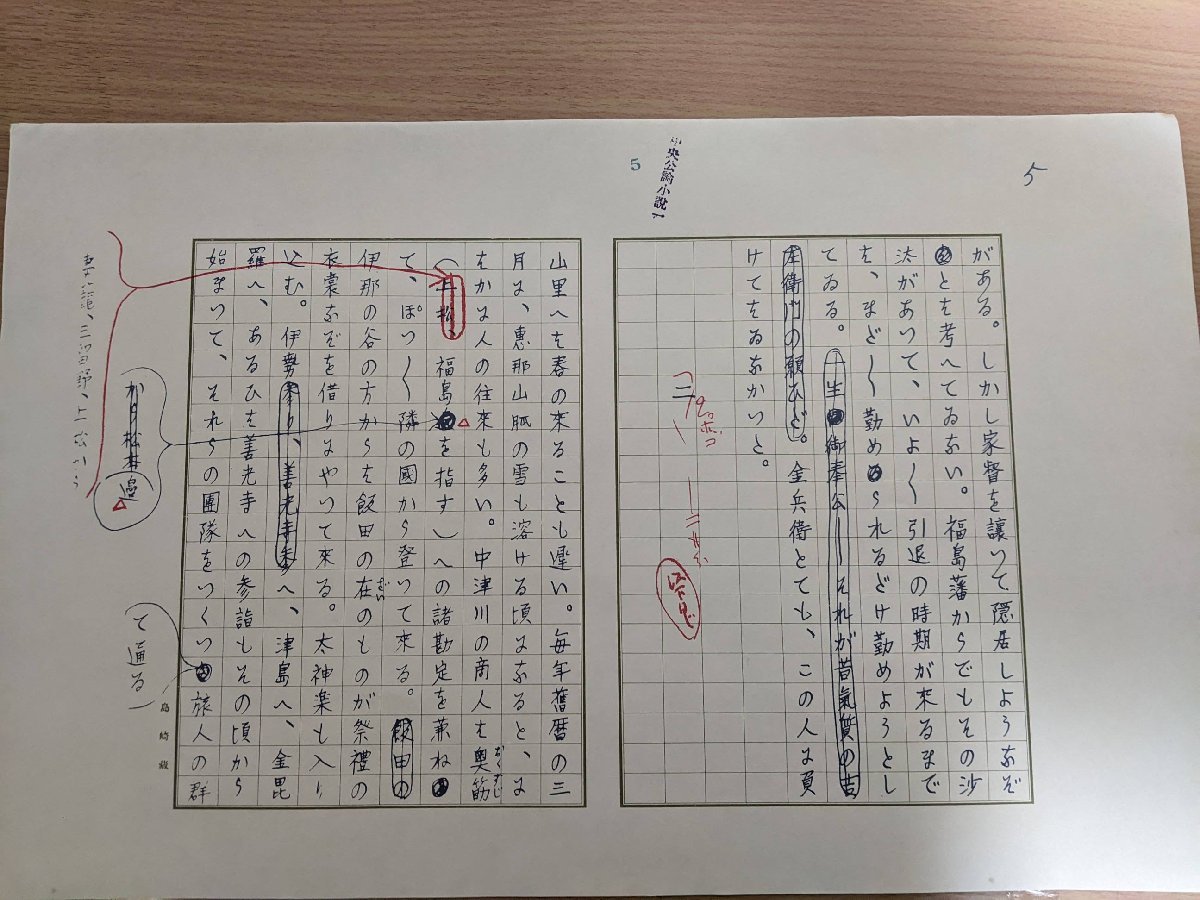 5
中央公論小説
5
がある。しかし家督を譲つて隠居しようなぞ
とを考へてゐない。福島藩からでもその沙
汰があつて、いよ〳〵引退の時期が来るまで
を、まだ〳〵勤められるだけ勤めようとし
てゐる。一生御奉公――それが昔氣質の吉
左衛門の願ひだ。金兵衛とても、この人に負
けてをゐなかつた。
二
山里へを春の来ることも遲い。毎年舊暦の三
月に、恵那山脈の雪も溶ける頃になると、に
をかに人の往来も多い。中津川の商人を奥筋
おくすぢ
(上松、福島を指す)への諸勘定を兼ね
て、ぽつ〳〵隣の國から登つて来る。飯田の
伊那の谷の方からを飯田の在のものが祭禮の
ざい
衣裳なぞを借りにやつて来る。太神楽も入り
込む。伊勢参り、善光寺参へ、津島へ、金毘
羅へ、あるひを善光寺への参詣もその頃から
始まつて、それらの團隊をつくつ旅人の群
て通る
島崎蔵
から松本邊
三留野、上松から